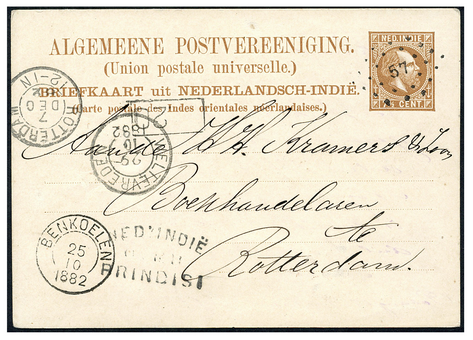 ALGEMEENE POSTVEREENIGING.
(Union postale universelle.)
BRIEFKAART uit NEDERLANDSCH-INDIË.
(Carte postale des Indes orientales néerlandaises.)
NED. INDIE
57
CENT.
ROTTERDAM
7 DEC
12-1N
WELTEVREDEN
29
10
1882
Aan de H.H. Kramers & Zoon
Boekhandelaren
te
Rotterdam.
BENKOELEN
25
10
1882
NED'INDIË
BRINDISI